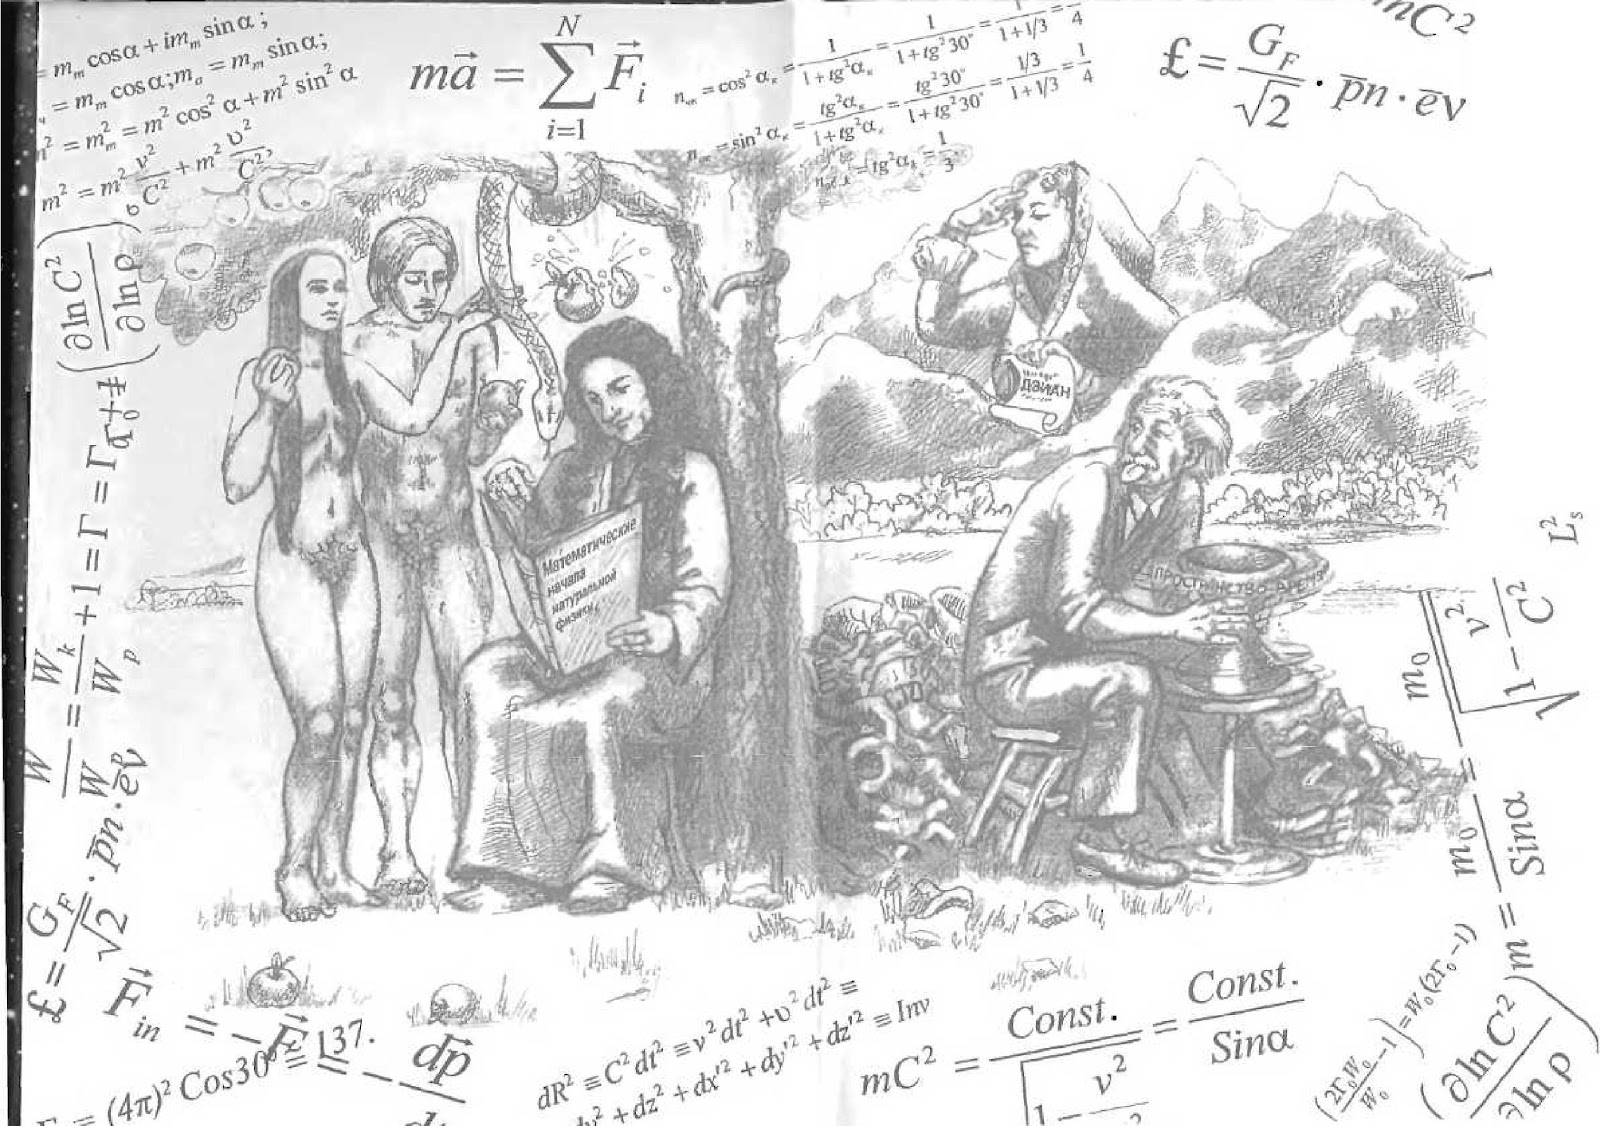 = m_m cosα + im_m sinα ;
= m_m cosα; m_a = m_m sinα;
= m_m^2 = m^2 cos^2 α + m^2 sin^2 α
m^2 = m^2 v^2/C^2 + m^2 υ^2/C^2,
ma⃗ = ∑_{i=1}^{N} F⃗_i
= cos^2 α_к = 1/(1+tg^2α_к) = 1/(1+tg^2 30°) = 1/(1+1/3) = /4
= sin^2 α_к = tg^2α_к/(1+tg^2α_к) = tg^2 30°/(1+tg^2 30°) = 1/3/(1+1/3) = 1/4
= tg^2α_k = 1/3
mC^2
£ = G_F/√2 · p̄n · ēν
(∂ln C^2/∂ln ρ)
W/W = W_k/W_p + 1 = Γ = Γ_0
£ = G_F/√2 · p̄n · ēν
ДЭИАН
Математические
начала
натуральной
физики
ПРОСТРАНСТВО-ВРЕМЯ
L_s^2
m = m_0/Sinα = m_0/√(1 − v^2/C^2)
F⃗_in = −F⃗ = − dp⃗
= (4π)^2 Cos30° ≅ 137.
dR^2 ≡ C^2 dt^2 ≡ v^2 dt^2 + υ^2 dt^2 ≡
+ dz^2 + dx'^2 + dy'^2 + dz'^2 ≡ Inv
mC^2 = Const./√(1 − v^2) = Const./Sinα
= W_0(2Γ_0 −1)
(∂ln C^2/∂ln ρ)